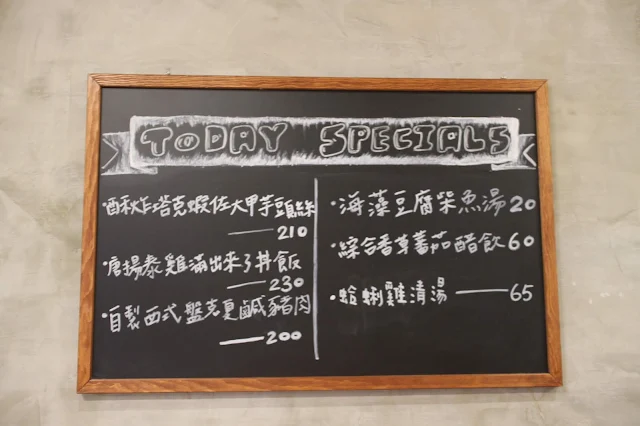 TODAY SPECIALS
·酥炸塔克蝦佐大甲芋頭絲
—210
·唐揚泰雞滿出來了丼飯
—230
·自製西式盤克夏鹹豬肉
—200
·海藻豆腐柴魚湯20
·綜合香草蕃茄醋飲60
·蛤蜊雞清湯—65